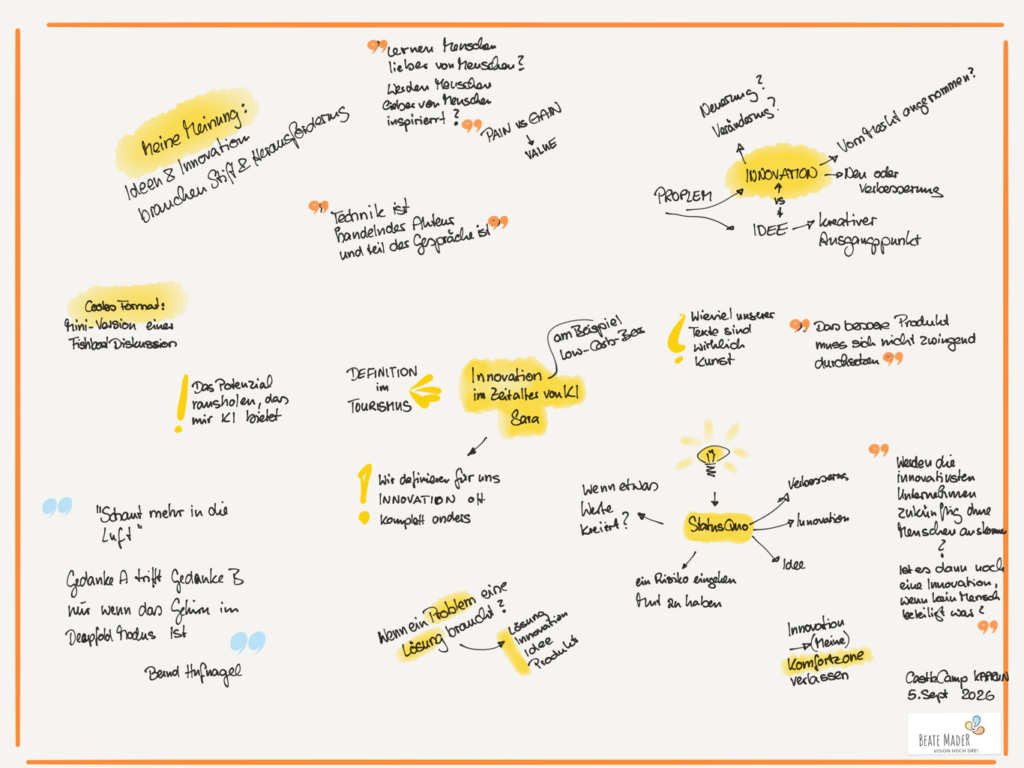 Meine Meinung:
Ideen & Innovation
brauchen Stift & Herausforderung
Lernen Menschen
lieber von Menschen?
Werden Menschen
lieber von Menschen
inspiriert?
PAIN vs GAIN
VALUE
"Technik ist
handelnder Akteur
und teil der Gespräche ist"
Neuerung?
Veränderung?
Vom Markt angenommen?
INNOVATION
Neu oder
Verbesserung
PROBLEM
vs
IDEE
kreativer
Ausgangspunkt
Cooles Format:
Mini-Version einer
Fishbowl Diskussion
! Das Potenzial
rausholen, das
mir KI bietet
DEFINITION
im
TOURISMUS
Innovation
im Zeitalter von KI
Sara
am Beispiel
Low-Carb-Bea
Wieviel unserer
Texte sind
wirklich
Kunst
"Das bessere Produkt
muss sich nicht zwingend
durchsetzen"
! Wir definieren für uns
INNOVATION oft
komplett anders
"Schaut mehr in die
Luft"
Gedanke A trifft Gedanke B
nur wenn das Gehirn im
Modus ist
Bernd Hufnagel
Wenn ein Problem eine
Lösung braucht?
Lösung
Innovation
Idee
Produkt
Wenn etwas
Werte
kreiert?
Status Quo
Verbesserung
Innovation
Idee
ein Risiko eingehen
Mut zu haben
Innovation
(Meine)
Komfortzone
verlassen
Werden die
innovativsten
Unternehmen
zukünftig ohne
Menschen auskommen
?
Ist es dann noch
eine Innovation,
wenn kein Mensch
beteiligt war?
CastleCamp KAPRUN
5. Sept 2026
BEATE MADER
VISION HOCH DREI